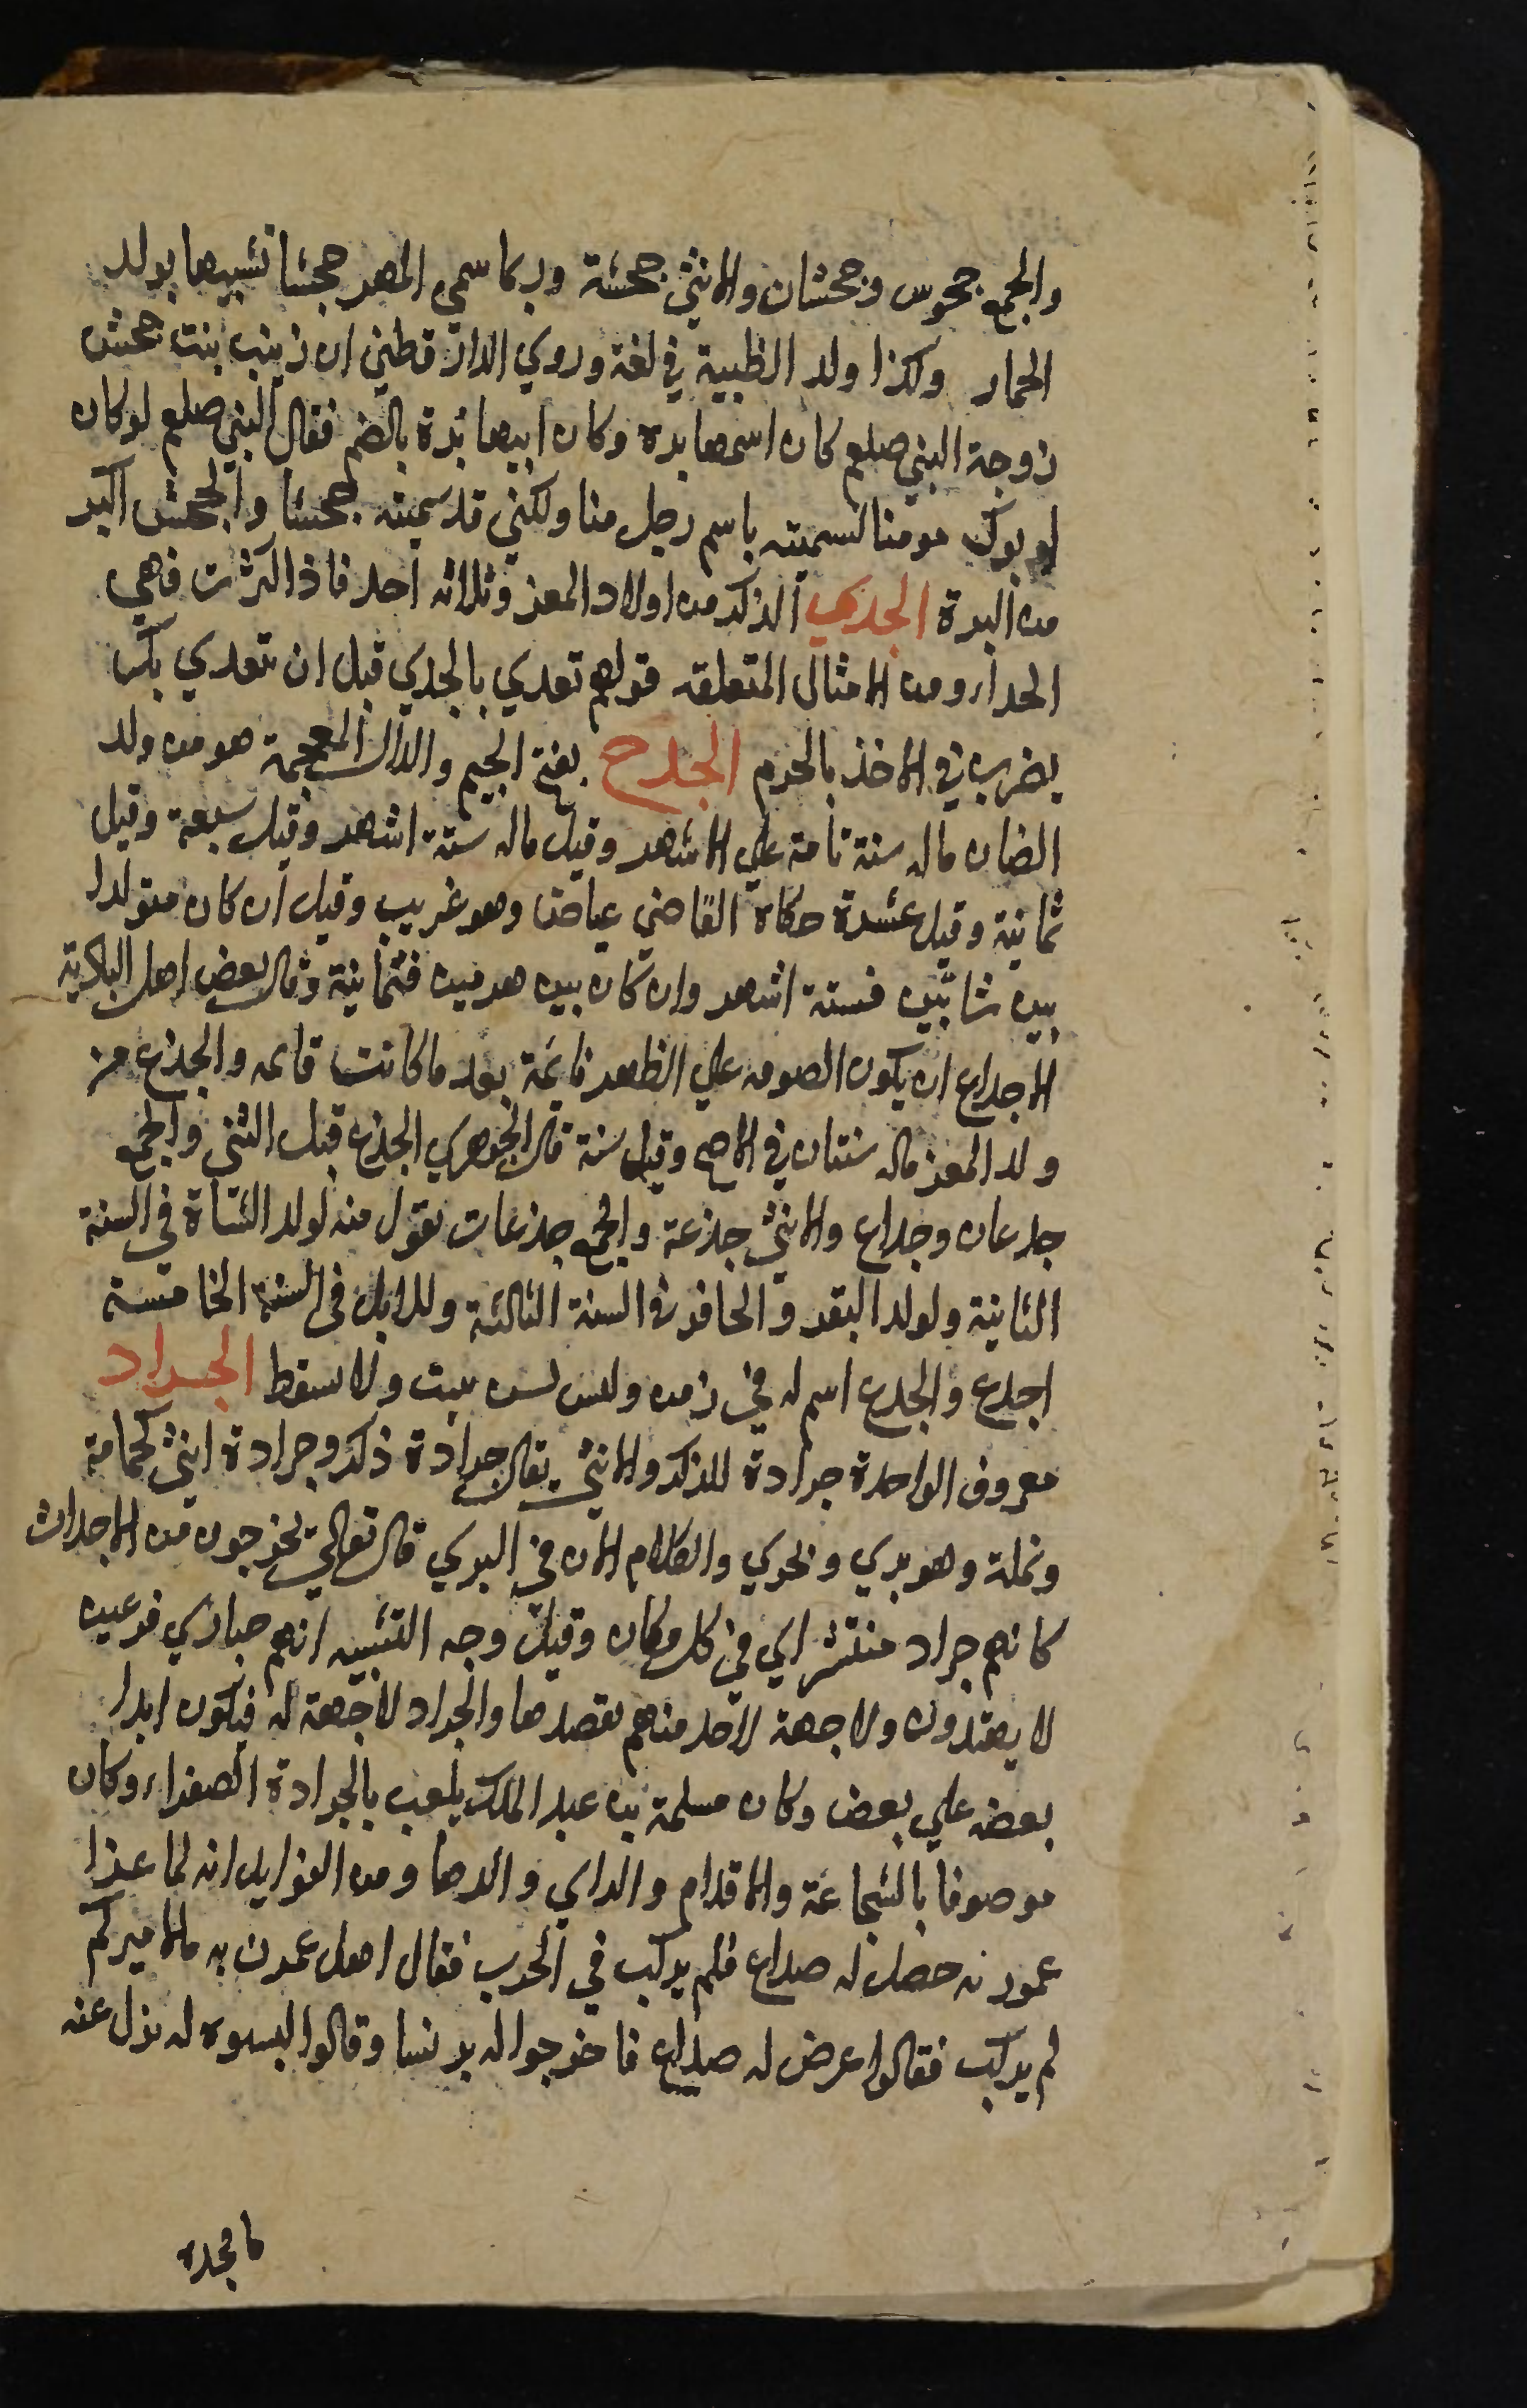 والجمع جحوس وجحشان والانثي جحشة وربما سمي المهر جحشا تشبيها بولد
الحمار وكذا ولد الظبية في لغة وروي الدار قطني ان زينب بنت جحش
زوجة النبي صلعم كان اسمها بره وكان ابيها بُرة بالضم فقال النبي صلعم لو كان
ابو بوك مومنا لسميته باسم رجل منا ولكني قد سميته جحشا والجحش اكبر
من البرة الجدي الذكر من اولاد المعز وثلاثه احد فاذا كثرت فهي
الجداء ومن الامثال المتعلقه قولهم تغدي بالجدي قبل ان يتغدي بك
يضرب في الاخذ بالحزم الجدع بفتح الجيم والدال المعجمة هو من ولد
الضان ماله سنة تامة علي الاشهر وقيل ماله ستة اشهر وقيل سبعة وقيل
ثمانية وقيل عشرة حكاه القاضي عياض وهو غريب وقيل ان كان متولدا
بين شابين فستة اشهر وان كان بين هرمين فثمانية وقال بعض اهل البادية
الاجداع ان يكون الصوف علي الظهر نايمة بعد ما كانت قايمه والجذع من
ولد المعز ماله سنتان في الاصح وقيل سنة قال الجوهري الجذع قبل الثني والجمع
جدعان وجداع والانثي جذعة والجمع جذعات تقول منه لولد الشاة في السنة
الثانية ولولد البقر والحافر في السنة الثالثة وللابل في السنة الخامسة
اجدع والجدع اسم له في زمن وليس لسن ينبت ولا سقط الجراد
معروف الواحدة جرادة للذكر والانثي يقال جرادة ذكر وجرادة انثي كحمامة
ونملة وهو بري وبحري والكلام الان في البري قال تعالي يخرجون من الاجداث
كانهم جراد منتشر اي في كل مكان وقيل وجه التشبيه انهم حياري فزعين
لا يهتدون ولا جهة لاحد منهم يقصدها والجراد لا جهة له فيكون ابدا
بعضه علي بعض وكان مسلمة بن عبد الملك يلقب بالجرادة الصفراء وكان
موصوفا بالشجاعة والاقدام والراي والدها ومن الغرايب انه لما غزا
عمورنه حصل له صداع فلم يركب في الحرب فقال اهل عمورنه ما لاميركم
لم يركب فقالوا عرض له صداع فاخرجوا له برنسا وقالوا البسوه له يزل عنه
ما يجده